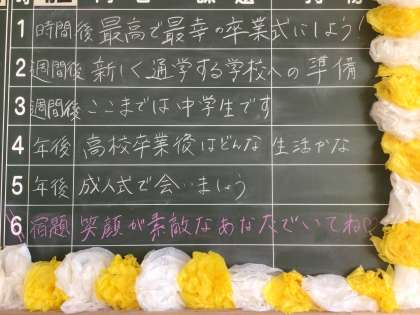 1 時間後 最高で最幸の卒業式にしよう!
2 週間後 新しく通学する学校への準備
3 週間後 ここまでは中学生です
4 年後 高校卒業後はどんな生活かな
5 年後 成人式で会いましょう
6 宿題 笑顔が素敵なあなたでいてね♡